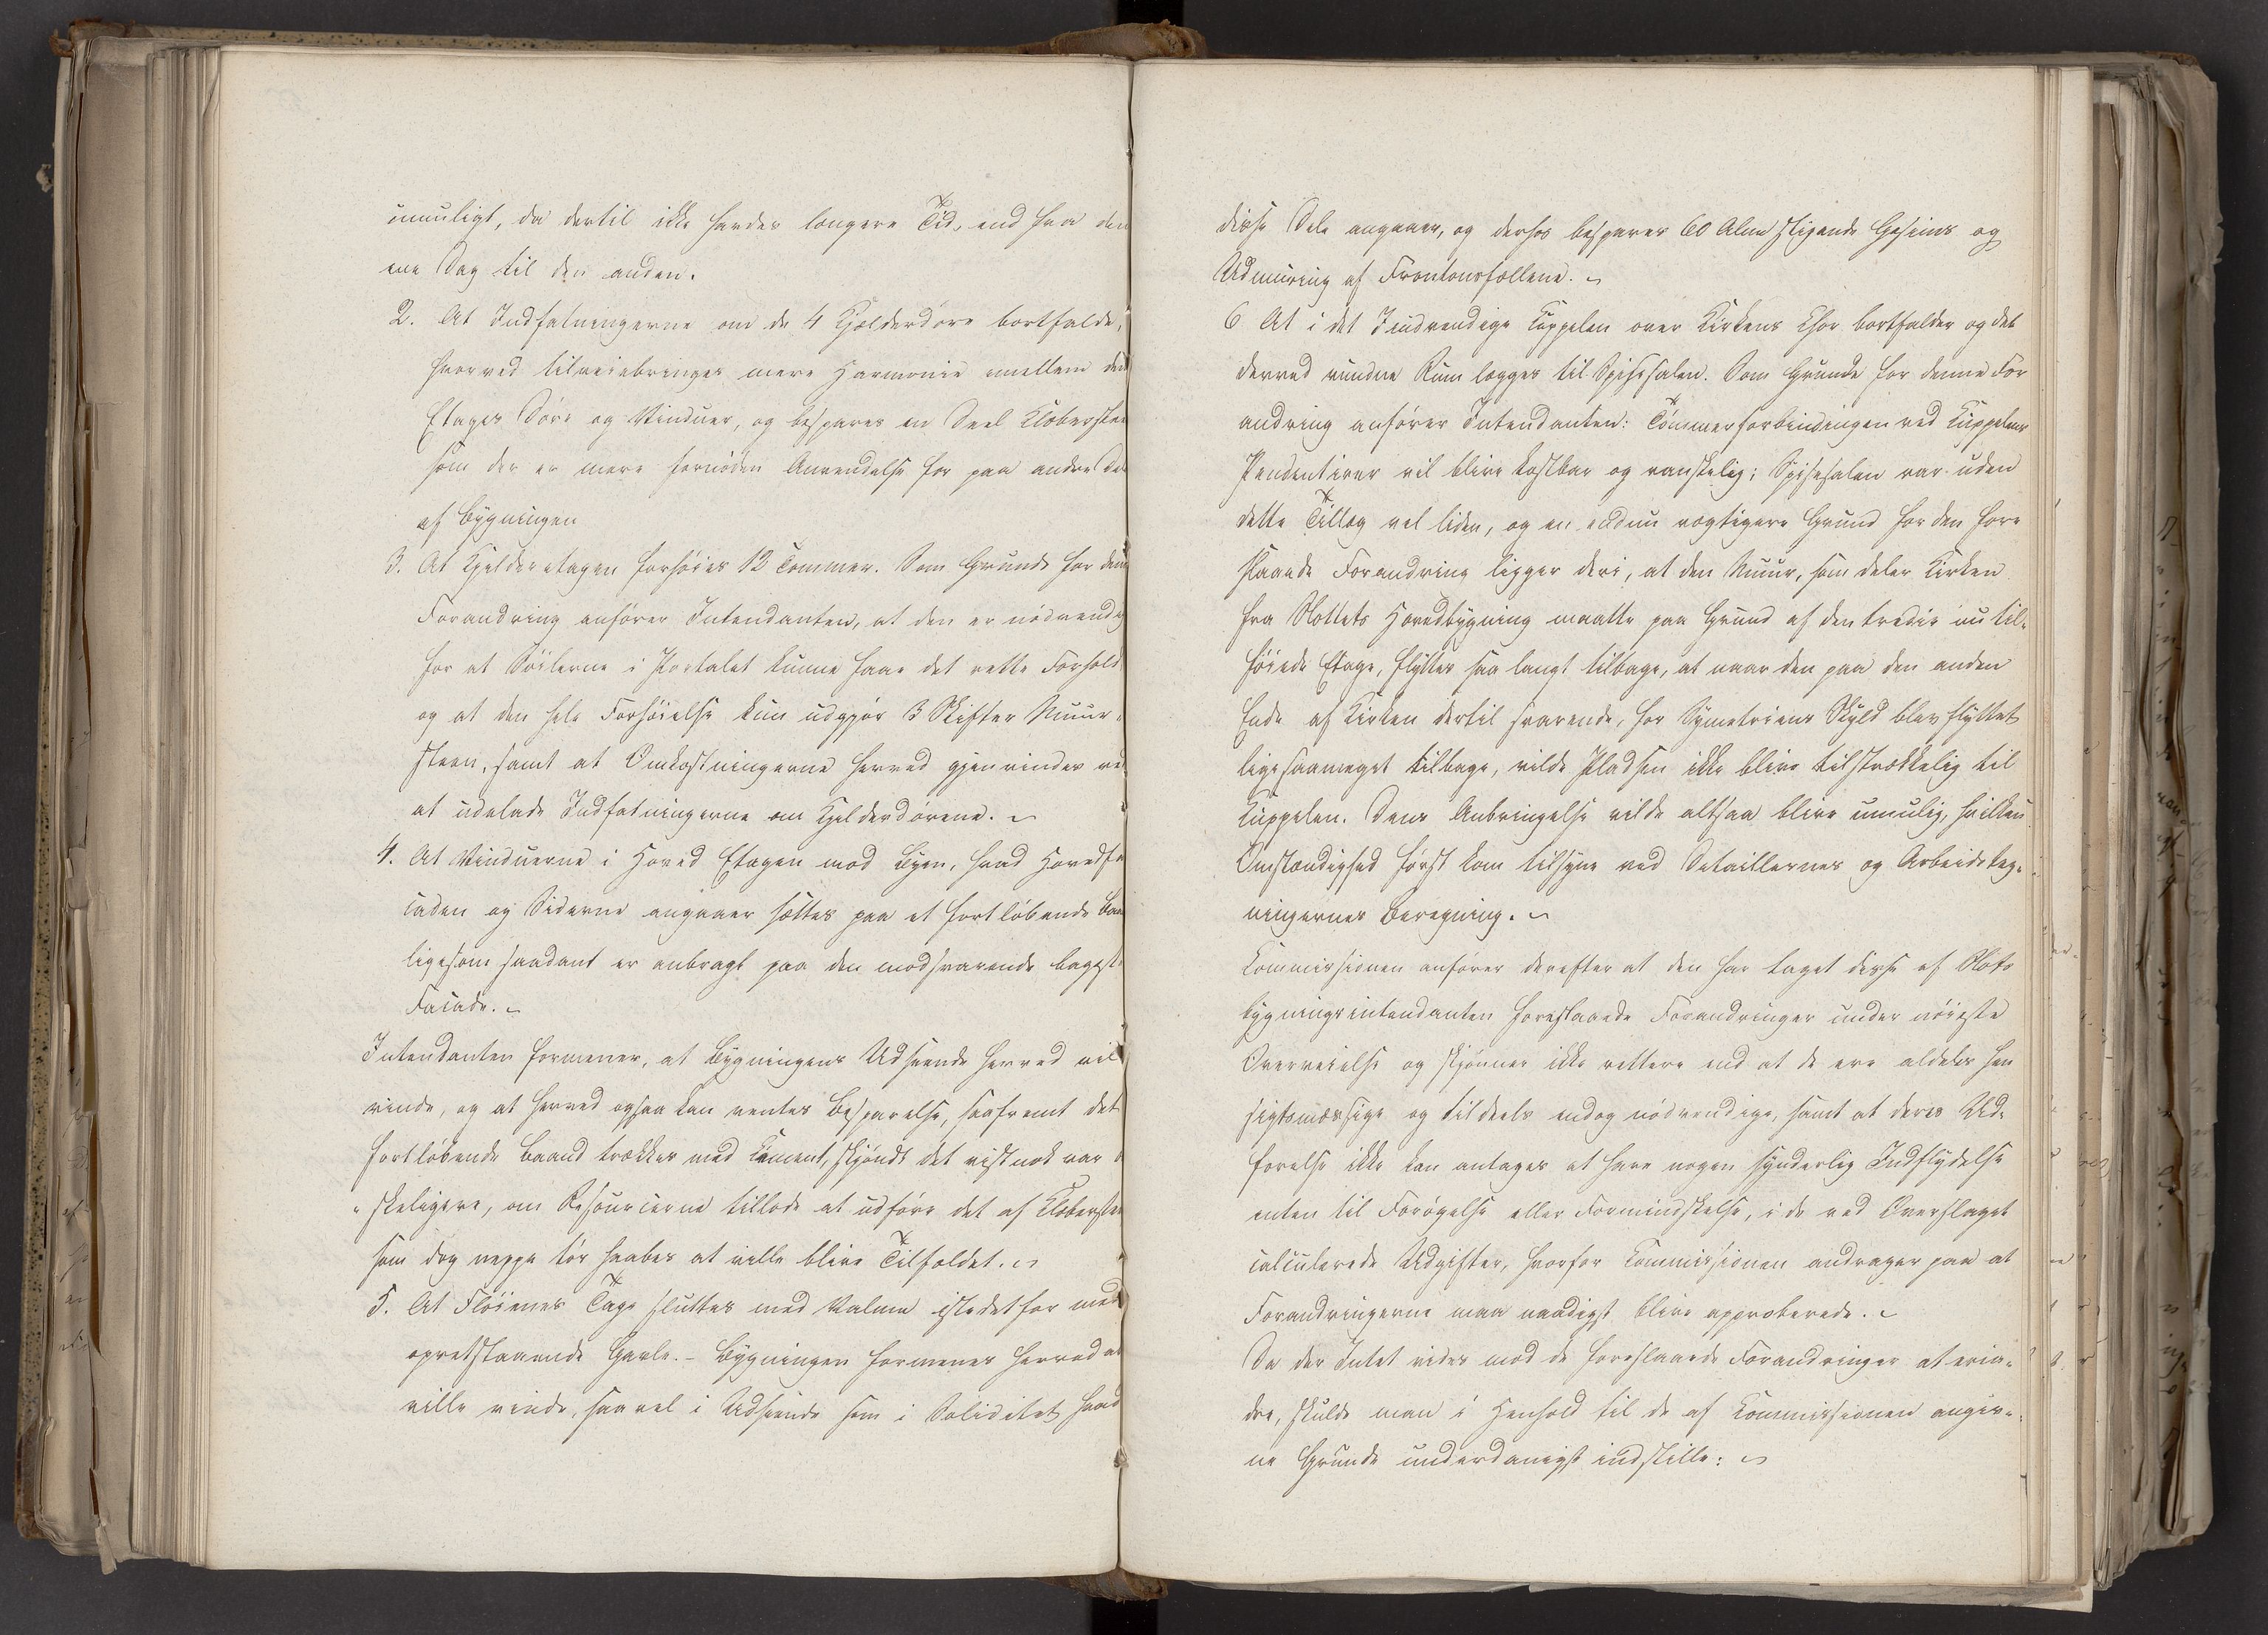 umuligt, da dertil ikke havdes længere Tid, end fra den
ene Dag til den anden.
2. At Indfatningerne om de 4 Kjælderdøre bortfalde,
hvorved tilveiebringes mere Harmonie mellem den
Etages Døre og Vinduer, og bespares en Deel Klæbersten
som der er mere fornøden Anvendelse for paa andre Dele
af Bygningen
3. At Kjelderetagen forhøies 12 Tommer. Som Grunde for denne
Forandring anfører Intendanten, at den er nødvendig
for at Søilerne i Portalet kunne faae det rette Forhold
og at den hele Forhøielse kun udgjør 3 Skifter Muur-
steen, samt at Omkostningerne herved gjenvindes ved
at udelade Indfatningerne om Kjelderdørene.
4. At Vinduerne i Hoved Etagen mod Byen, hvad Hovedfa
caden og Siderne angaaer sættes paa et fortløbende Baand
ligesom saadant er anbragt paa den modsvarende bageste
Facade.
Intendanten formener, at Bygningens Udseende herved vil
vinde, og at herved ogsaa kan ventes Besparelse, saafremt det
fortløbende Baand trækkes med Cement, skjøndt det vistnok var
skeligere, om Resourcerne tillode at udføre det af Klæbersten
som dog neppe tør haabes at ville blive Tilfældet.
5. At Fløienes Tage sluttes med Valme istedetfor med
opretstaaende Gavle. - Bygningen formenes herved at
ville vinde, saavel i Udseende som i Soliditet hvad
disse Dele angaaer, og derhos bespares 60 Alen stigende Gesims og
Udmuring af Frontonsfællene.
6 At i det Indvendige Kuppelen over Kirkens Chor bortfalder og det
derved vundne Rum lægges til Spisesalen. Som Grunde for denne For
andring anfører Intendanten: Tømmerforbindingen ved Kuppelens
Pendentiver vil blive kostbar og vanskelig; Spisesalen var uden
dette Tillæg vel liden, og en endnu vægtigere Grund for den fore
slaaede Forandring ligger deri, at den Muur, som deler Kirken
fra Slottets Hovedbygning maatte paa Grund af den tredie nu til-
føiede Etage, flyttes saa langt tilbage, at naar den paa den anden
Ende af Kirken dertil svarende, for Symetriens Skyld blev flyttet
ligesaameget tilbage, vilde Pladsen ikke blive tilstrækkelig til
Kuppelen. Dens Anbringelse vilde altsaa blive umulig, hvilken
Omstændighed først kom tilsyne ved Detaillernes og Arbeidsteg-
ningernes Beregning.
Commissionen anfører derefter at den har taget disse af Slots
bygningsintendanten foreslaaede Forandringer under nøieste
Overveielse og skjønner ikke rettere end at de ere aldeles hen
sigtsmæssige og tildeels endog nødvendige, samt at deres Ud-
førelse ikke kan antages at have nogen synderlig Indflydelse
enten til Forøgelse eller Formindskelse, i de ved Overslaget
calculerede Udgifter, hvorfor Commissionen andrager paa at
Forandringerne maa naadigst blive approberede.
Da der Intet vides mod de foreslaaede Forandringer at erin-
dre, skulde man i Henhold til de af Commissionen angiv-
ne Grunde underdanigst indstille: